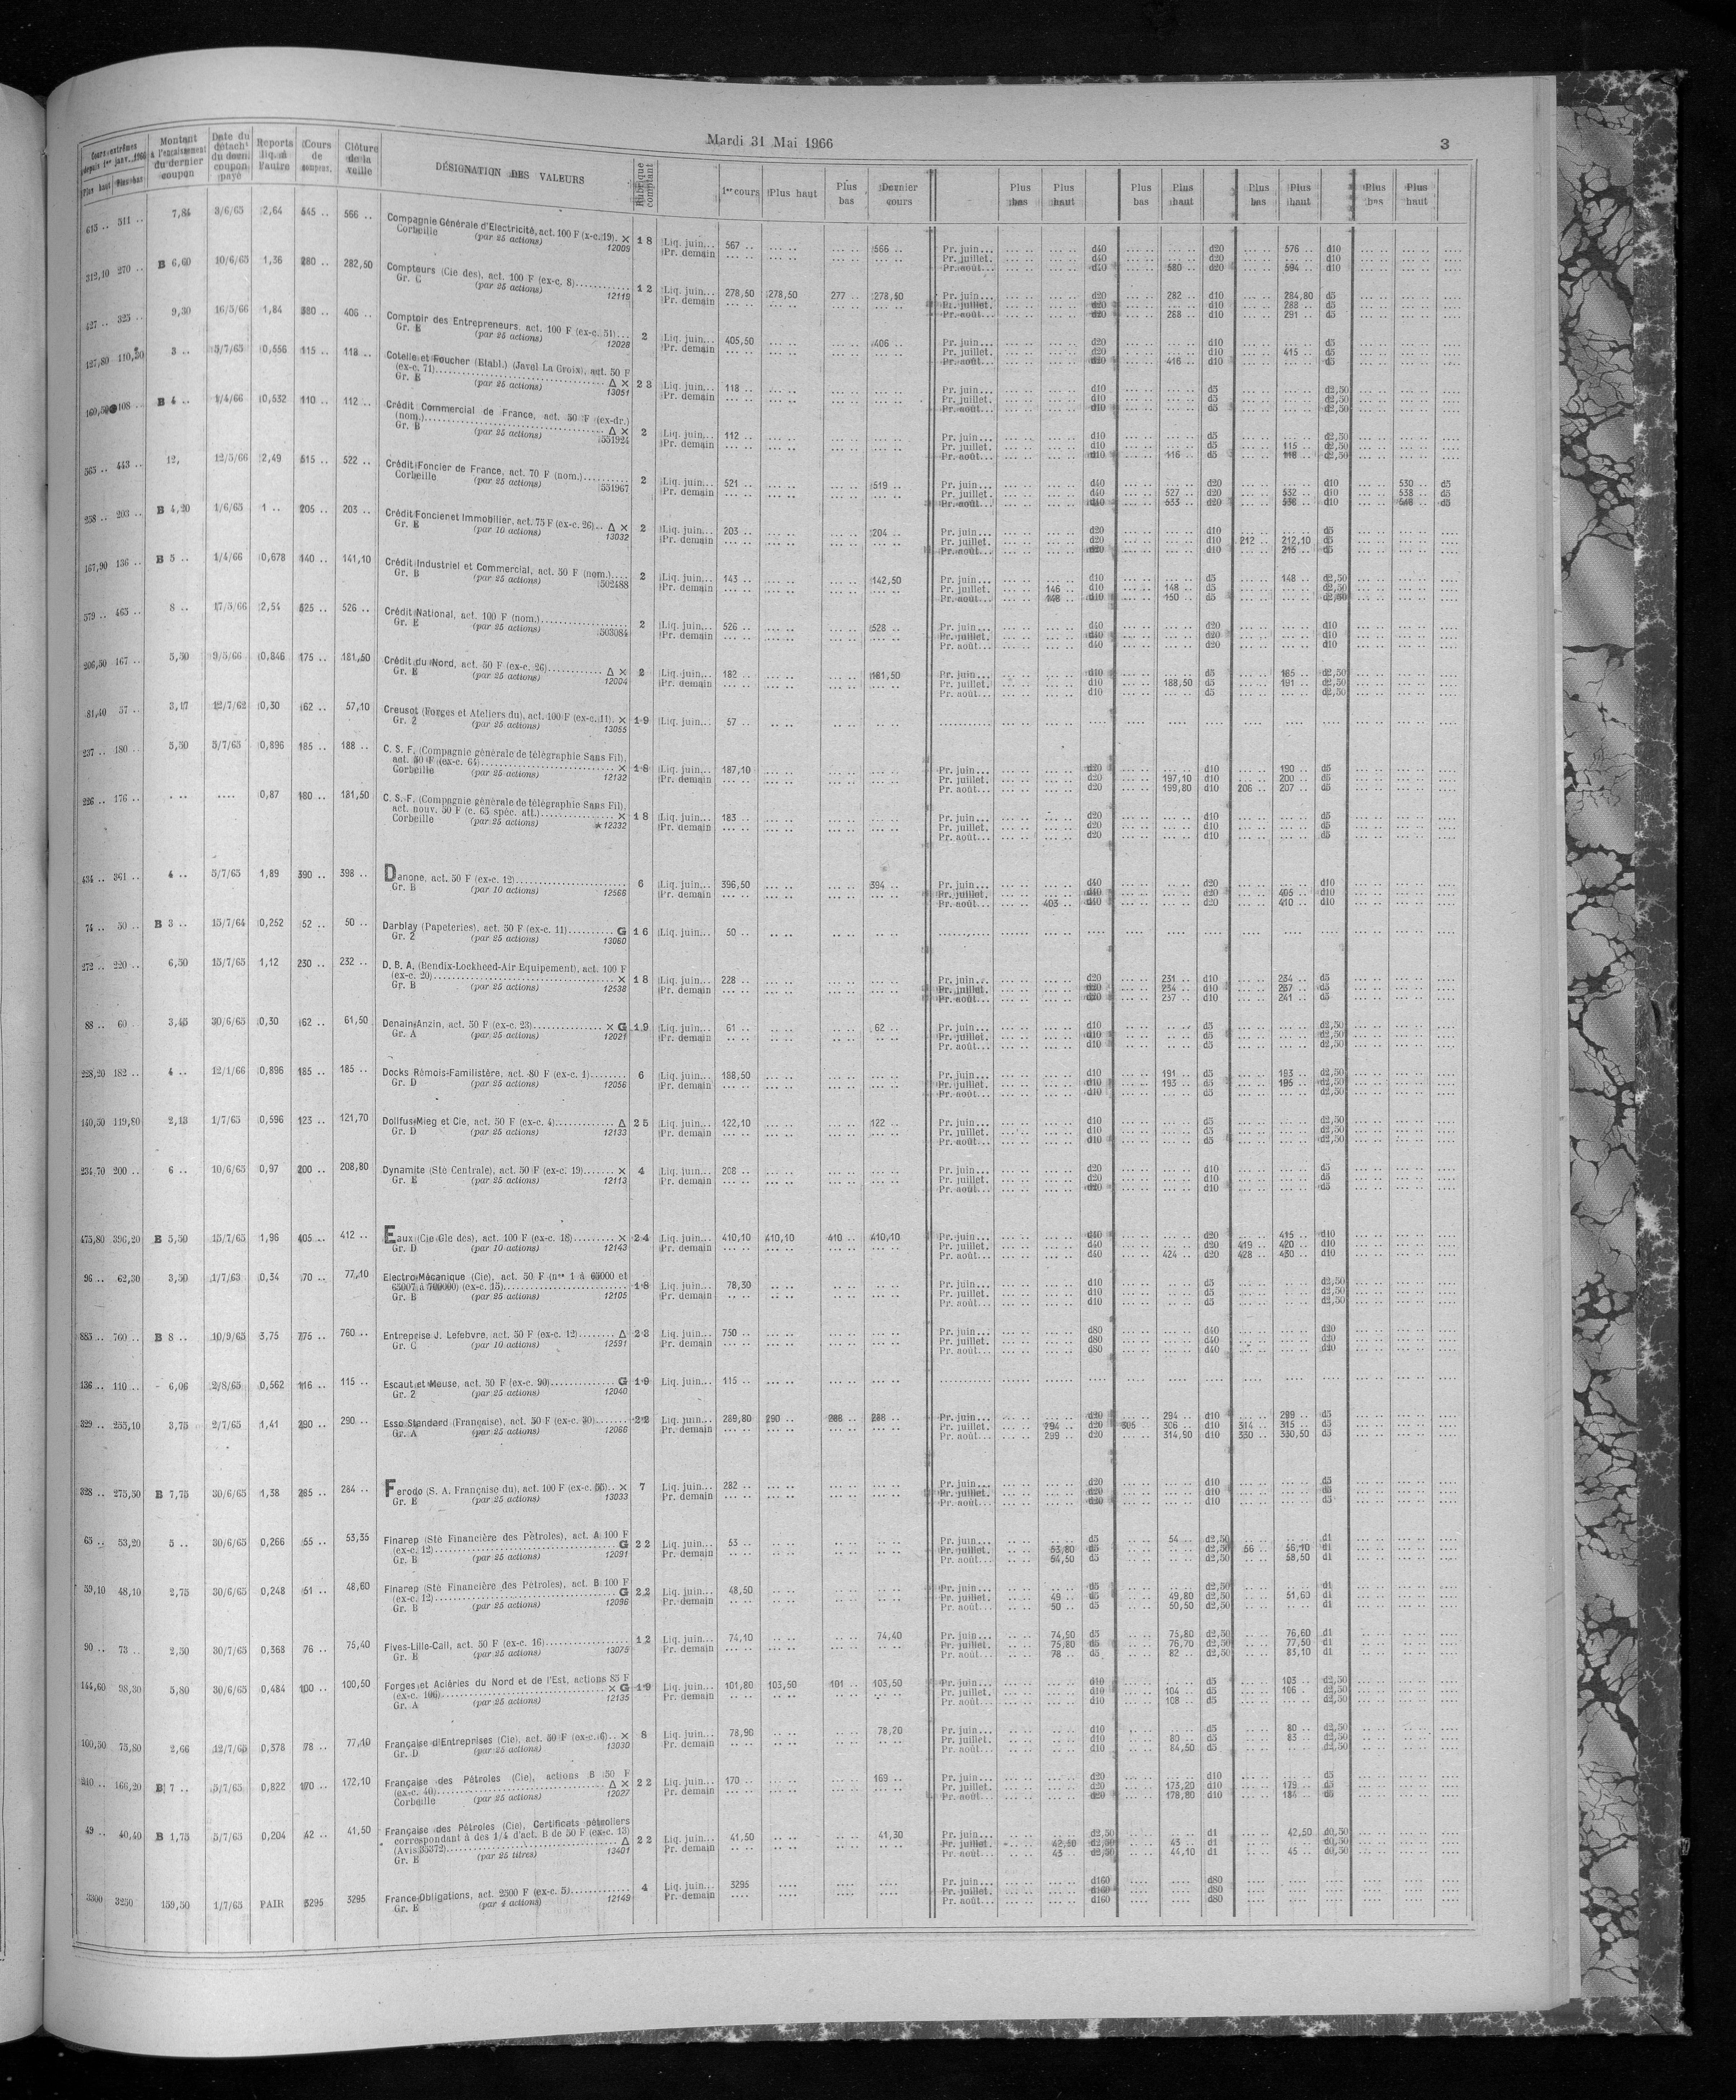 Mardi 31 Mai 1966
3
Cours extrêmes depuis 1er janv. 1966 Plus haut Plus bas | Montant à l'encaissement du dernier coupon | Date du détacht du dern. coupon payé | Reports liq. à l'autre | Cours de compens. | Clôture de la veille | DÉSIGNATION DES VALEURS | Rubrique comptant | 1er cours | Plus haut | Plus bas | Dernier cours | Plus bas | Plus haut | Plus bas | Plus haut | Plus bas | Plus haut | Plus bas | Plus haut
615 .. 511 .. 7,84 3/6/65 2,64 545 .. 566 .. Compagnie Générale d'Electricité, act. 100 F (x-c. 19). ×
Corbeille (par 25 actions) 12009 18 Liq. juin... 567 .. 566 .. Pr. juin... d40 d20 576 .. d10
Pr. demain Pr. juillet. d40 d20 d10
Pr. août... d40 580 .. d20 594 .. d10
312,10 270 .. B 6,60 10/6/65 1,36 280 .. 282,50 Compteurs (Cie des), act. 100 F (ex-c. 8)
Gr. C (par 25 actions) 12119 12 Liq. juin... 278,50 278,50 277 .. 278,50 Pr. juin... d20 282 .. d10 284,80 d5
Pr. demain Pr. juillet. d20 d10 288 .. d5
Pr. août... d20 288 .. d10 291 .. d5
427 .. 325 .. 9,30 16/5/66 1,84 380 .. 406 .. Comptoir des Entrepreneurs, act. 100 F (ex-c. 51)
Gr. E (par 25 actions) 12028 2 Liq. juin... 405,50 406 .. Pr. juin... d20 d10 d5
Pr. demain Pr. juillet. d20 d10 415 .. d5
Pr. août... d20 416 .. d10 d5
127,80 110,50 3 .. 5/7/65 0,556 115 .. 118 .. Cotelle et Foucher (Etabl.) (Javel La Croix), act. 50 F
(ex-c. 71) Δ ×
Gr. E (par 25 actions) 13051 23 Liq. juin... 118 .. Pr. juin... d10 d5 d2,50
Pr. demain Pr. juillet. d10 d5 d2,50
Pr. août... d10 d5 d2,50
108 .. B 4 .. 1/4/66 0,532 110 .. 112 .. Crédit Commercial de France, act. 50 F (ex-dr.)
(nom.) Δ ×
Gr. B (par 25 actions) 551924 2 Liq. juin... 112 .. Pr. juin... d10 d5 d2,50
Pr. demain Pr. juillet. d10 d5 115 .. d2,50
Pr. août... d10 116 .. d5 118 .. d2,50
565 .. 443 .. 12, 12/5/66 2,49 515 .. 522 .. Crédit Foncier de France, act. 70 F (nom.)
Corbeille (par 25 actions) 551967 2 Liq. juin... 521 .. 519 .. Pr. juin... d40 d20 d10 530 .. d5
Pr. demain Pr. juillet. d40 527 .. d20 532 .. d10 538 .. d5
Pr. août... d40 533 .. d20 538 .. d10 548 .. d5
258 .. 203 .. B 4,20 1/6/65 1 .. 205 .. 203 .. Crédit Foncier et Immobilier, act. 75 F (ex-c. 26) Δ ×
Gr. E (par 10 actions) 13032 2 Liq. juin... 203 .. 204 .. Pr. juin... d20 d10 d5
Pr. demain Pr. juillet. d20 d10 212 .. 212,10 d5
Pr. août... d20 d10 215 .. d5
167,90 136 .. B 5 .. 1/4/66 0,678 140 .. 141,10 Crédit Industriel et Commercial, act. 50 F (nom.)
Gr. B (par 25 actions) 502488 2 Liq. juin... 143 .. 142,50 Pr. juin... d10 d5 148 .. d2,50
Pr. demain Pr. juillet. 146 .. d10 148 .. d5 d2,50
Pr. août... 148 .. d10 150 .. d5 d2,50
579 .. 465 .. 8 .. 17/5/66 2,54 525 .. 526 .. Crédit National, act. 100 F (nom.)
Gr. E (par 25 actions) 503084 2 Liq. juin... 526 .. 528 .. Pr. juin... d40 d20 d10
Pr. demain Pr. juillet. d40 d20 d10
Pr. août... d40 d20 d10
206,50 167 .. 5,50 9/5/66 0,846 175 .. 181,50 Crédit du Nord, act. 50 F (ex-c. 26) Δ ×
Gr. E (par 25 actions) 12004 2 Liq. juin... 182 .. 181,50 Pr. juin... d10 d5 185 .. d2,50
Pr. demain Pr. juillet. d10 188,50 d5 191 .. d2,50
Pr. août... d10 d5 d2,50
81,40 57 .. 3,17 12/7/62 0,30 62 .. 57,10 Creusot (Forges et Ateliers du), act. 100 F (ex-c. 11). ×
Gr. 2 (par 25 actions) 13055 19 Liq. juin... 57 ..
237 .. 180 .. 5,50 5/7/65 0,896 185 .. 188 .. C. S. F. (Compagnie générale de télégraphie Sans Fil),
act. 50 F (ex-c. 64) ×
Corbeille (par 25 actions) 12132 18 Liq. juin... 187,10 Pr. juin... d20 d10 190 .. d5
Pr. demain Pr. juillet. d20 197,10 d10 200 .. d5
Pr. août... d20 199,80 d10 206 .. 207 .. d5
226 .. 176 .. .. .. .... 0,87 180 .. 181,50 C. S. F. (Compagnie générale de télégraphie Sans Fil),
act. nouv. 50 F (c. 65 spéc. att.) ×
Corbeille (par 25 actions) ★ 12332 18 Liq. juin... 183 .. Pr. juin... d20 d10 d5
Pr. demain Pr. juillet. d20 d10 d5
Pr. août... d20 d10 d5
434 .. 361 .. 4 .. 5/7/65 1,89 390 .. 398 .. Danone, act. 50 F (ex-c. 12)
Gr. B (par 10 actions) 12566 6 Liq. juin... 396,50 394 .. Pr. juin... d40 d20 d10
Pr. demain Pr. juillet. d40 d20 405 .. d10
Pr. août... 403 .. d40 d20 410 .. d10
74 .. 50 .. B 3 .. 15/7/64 0,252 52 .. 50 .. Darblay (Papeteries), act. 50 F (ex-c. 11) G
Gr. 2 (par 25 actions) 13060 16 Liq. juin... 50 ..
272 .. 220 .. 6,50 15/7/65 1,12 230 .. 232 .. D. B. A. (Bendix-Lockheed-Air Equipement), act. 100 F
(ex-c. 20) ×
Gr. B (par 25 actions) 12538 18 Liq. juin... 228 .. Pr. juin... d20 231 .. d10 234 .. d5
Pr. demain Pr. juillet. d20 234 .. d10 237 .. d5
Pr. août... d20 237 .. d10 241 .. d5
88 .. 60 3,45 30/6/65 0,30 62 .. 61,50 Denain-Anzin, act. 50 F (ex-c. 23) × G
Gr. A (par 25 actions) 12021 19 Liq. juin... 61 .. 62 .. Pr. juin... d10 d5 d2,50
Pr. demain Pr. juillet. d10 d5 d2,50
Pr. août... d10 d5 d2,50
228,20 182 .. 4 .. 12/1/66 0,896 185 .. 185 .. Docks Rémois-Familistère, act. 80 F (ex-c. 1)
Gr. D (par 25 actions) 12056 6 Liq. juin... 188,50 Pr. juin... d10 191 .. d5 193 .. d2,50
Pr. demain Pr. juillet. d10 193 .. d5 195 .. d2,50
Pr. août... d10 d5 d2,50
140,50 119,80 2,13 1/7/65 0,596 123 .. 121,70 Dollfus-Mieg et Cie, act. 50 F (ex-c. 4) Δ
Gr. D (par 25 actions) 12133 25 Liq. juin... 122,10 122 .. Pr. juin... d10 d5 d2,50
Pr. demain Pr. juillet. d10 d5 d2,50
Pr. août... d10 d5 d2,50
234,70 200 .. 6 .. 10/6/65 0,97 200 .. 208,80 Dynamite (Sté Centrale), act. 50 F (ex-c. 19) ×
Gr. E (par 25 actions) 12113 4 Liq. juin... 208 .. Pr. juin... d20 d10 d5
Pr. demain Pr. juillet. d20 d10 d5
Pr. août... d20 d10 d5
475,80 396,20 B 5,50 15/7/65 1,96 405 .. 412 .. Eaux (Cie Gle des), act. 100 F (ex-c. 18) ×
Gr. D (par 10 actions) 12143 24 Liq. juin... 410,10 410,10 410 .. 410,10 Pr. juin... d40 d20 415 .. d10
Pr. demain Pr. juillet. d40 d20 419 .. 420 .. d10
Pr. août... d40 424 .. d20 428 .. 430 .. d10
96 .. 62,30 3,50 1/7/63 0,34 70 .. 77,10 Electro-Mécanique (Cie), act. 50 F (nos 1 à 65000 et
65007 à 700000) (ex-c. 15)
Gr. B (par 25 actions) 12105 18 Liq. juin... 78,30 Pr. juin... d10 d5 d2,50
Pr. demain Pr. juillet. d10 d5 d2,50
Pr. août... d10 d5 d2,50
885 .. 760 .. B 8 .. 10/9/65 3,75 775 .. 760 .. Entreprise J. Lefebvre, act. 50 F (ex-c. 12) Δ
Gr. C (par 10 actions) 12591 23 Liq. juin... 750 .. Pr. juin... d80 d40 d20
Pr. demain Pr. juillet. d80 d40 d20
Pr. août... d80 d40 d20
136 .. 110 .. 6,06 2/8/65 0,562 116 .. 115 .. Escaut et Meuse, act. 50 F (ex-c. 90) G
Gr. 2 (par 25 actions) 12040 19 Liq. juin... 115 ..
329 .. 255,10 3,75 2/7/65 1,41 290 .. 290 .. Esso Standard (Française), act. 50 F (ex-c. 30)
Gr. A (par 25 actions) 12066 22 Liq. juin... 289,80 290 .. 288 .. 288 .. Pr. juin... d20 294 .. d10 299 .. d5
Pr. demain Pr. juillet. 294 .. d20 305 306 .. d10 314 .. 315 .. d5
Pr. août... 299 .. d20 314,90 d10 330 .. 330,50 d5
328 .. 275,50 B 7,75 30/6/65 1,38 285 .. 284 .. Ferodo (S. A. Française du), act. 100 F (ex-c. 55) ×
Gr. E (par 25 actions) 13033 7 Liq. juin... 282 .. Pr. juin... d20 d10 d5
Pr. demain Pr. juillet. d20 d10 d5
Pr. août... d20 d10 d5
65 .. 53,20 5 .. 30/6/65 0,266 55 .. 53,35 Finarep (Sté Financière des Pétroles), act. A 100 F
(ex-c. 12) G
Gr. B (par 25 actions) 12091 22 Liq. juin... 53 .. Pr. juin... d5 54 .. d2,50 d1
Pr. demain Pr. juillet. 53,80 d5 d2,50 56 .. 56,10 d1
Pr. août... 54,50 d5 d2,50 58,50 d1
59,10 48,10 2,75 30/6/65 0,248 51 .. 48,60 Finarep (Sté Financière des Pétroles), act. B 100 F
(ex-c. 12) G
Gr. B (par 25 actions) 12096 22 Liq. juin... 48,50 Pr. juin... d5 d2,50 d1
Pr. demain Pr. juillet. 49 .. d5 49,80 d2,50 51,60 d1
Pr. août... 50 .. d5 50,50 d2,50 d1
90 .. 73 .. 2,50 30/7/65 0,368 76 .. 75,40 Fives-Lille-Cail, act. 50 F (ex-c. 16)
Gr. E (par 25 actions) 13075 12 Liq. juin... 74,10 74,40 Pr. juin... 74,90 d5 75,80 d2,50 76,60 d1
Pr. demain Pr. juillet. 75,80 d5 76,70 d2,50 77,50 d1
Pr. août... 78 .. d5 82 .. d2,50 83,10 d1
144,60 98,30 5,80 30/6/65 0,484 100 .. 100,50 Forges et Aciéries du Nord et de l'Est, actions 85 F
(ex-c. 106) × G
Gr. A (par 25 actions) 12135 19 Liq. juin... 101,80 103,50 101 .. 103,50 Pr. juin... d10 d5 103 .. d2,50
Pr. demain Pr. juillet. d10 104 .. d5 106 .. d2,50
Pr. août... d10 108 .. d5 d2,50
100,50 75,80 2,66 12/7/65 0,378 78 .. 77,10 Française d'Entreprises (Cie), act. 50 F (ex-c. 6) ×
Gr. D (par 25 actions) 13030 8 Liq. juin... 78,90 78,20 Pr. juin... d10 d5 80 .. d2,50
Pr. demain Pr. juillet. d10 80 .. d5 83 .. d2,50
Pr. août... d10 84,50 d5 d2,50
210 .. 166,20 B 7 .. 5/7/65 0,822 170 .. 172,10 Française des Pétroles (Cie), actions B 50 F
(ex-c. 40) Δ ×
Corbeille (par 25 actions) 12027 22 Liq. juin... 170 .. 169 .. Pr. juin... d20 d10 d5
Pr. demain Pr. juillet. d20 173,20 d10 179 .. d5
Pr. août... d20 178,80 d10 184 .. d5
49 .. 40,40 B 1,75 5/7/65 0,204 42 .. 41,50 Française des Pétroles (Cie), Certificats pétroliers
correspondant à des 1/4 d'act. B de 50 F (ex-c. 13)
(Avis 35372) Δ
Gr. E (par 25 titres) 13401 22 Liq. juin... 41,50 41,30 Pr. juin... d2,50 d1 42,50 d0,50
Pr. demain Pr. juillet. 42,50 d2,50 43 .. d1 d0,50
Pr. août... 43 d2,50 44,10 d1 45 .. d0,50
3300 3250 159,50 1/7/65 PAIR 3295 3295 France-Obligations, act. 2500 F (ex-c. 5)
Gr. E (par 4 actions) 12149 4 Liq. juin... 3295 Pr. juin... d160 d80
Pr. demain Pr. juillet. d160 d80
Pr. août... d160 d80